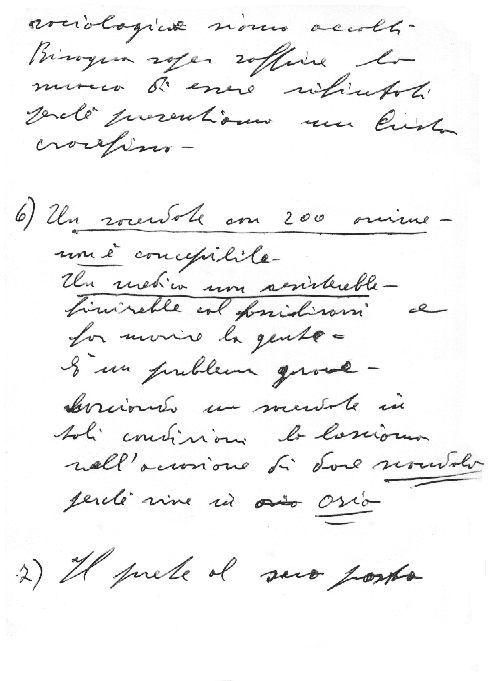 sociologica siamo accolti
Bisogna saper soffrire la
nuova di essere rifiutati
perchè presentiamo un Cristo
crocefisso -
6) Un sacerdote con 200 anime -
non è concepibile -
Un medico non resisterebbe -
finirebbe col fossilizzarsi e
far morire la gente -
È un problema grave -
Lasciando un sacerdote in
tali condizioni lo lasciamo
nell'occasione di dare scandalo
perchè vive in ozio
7) Il prete al suo posto